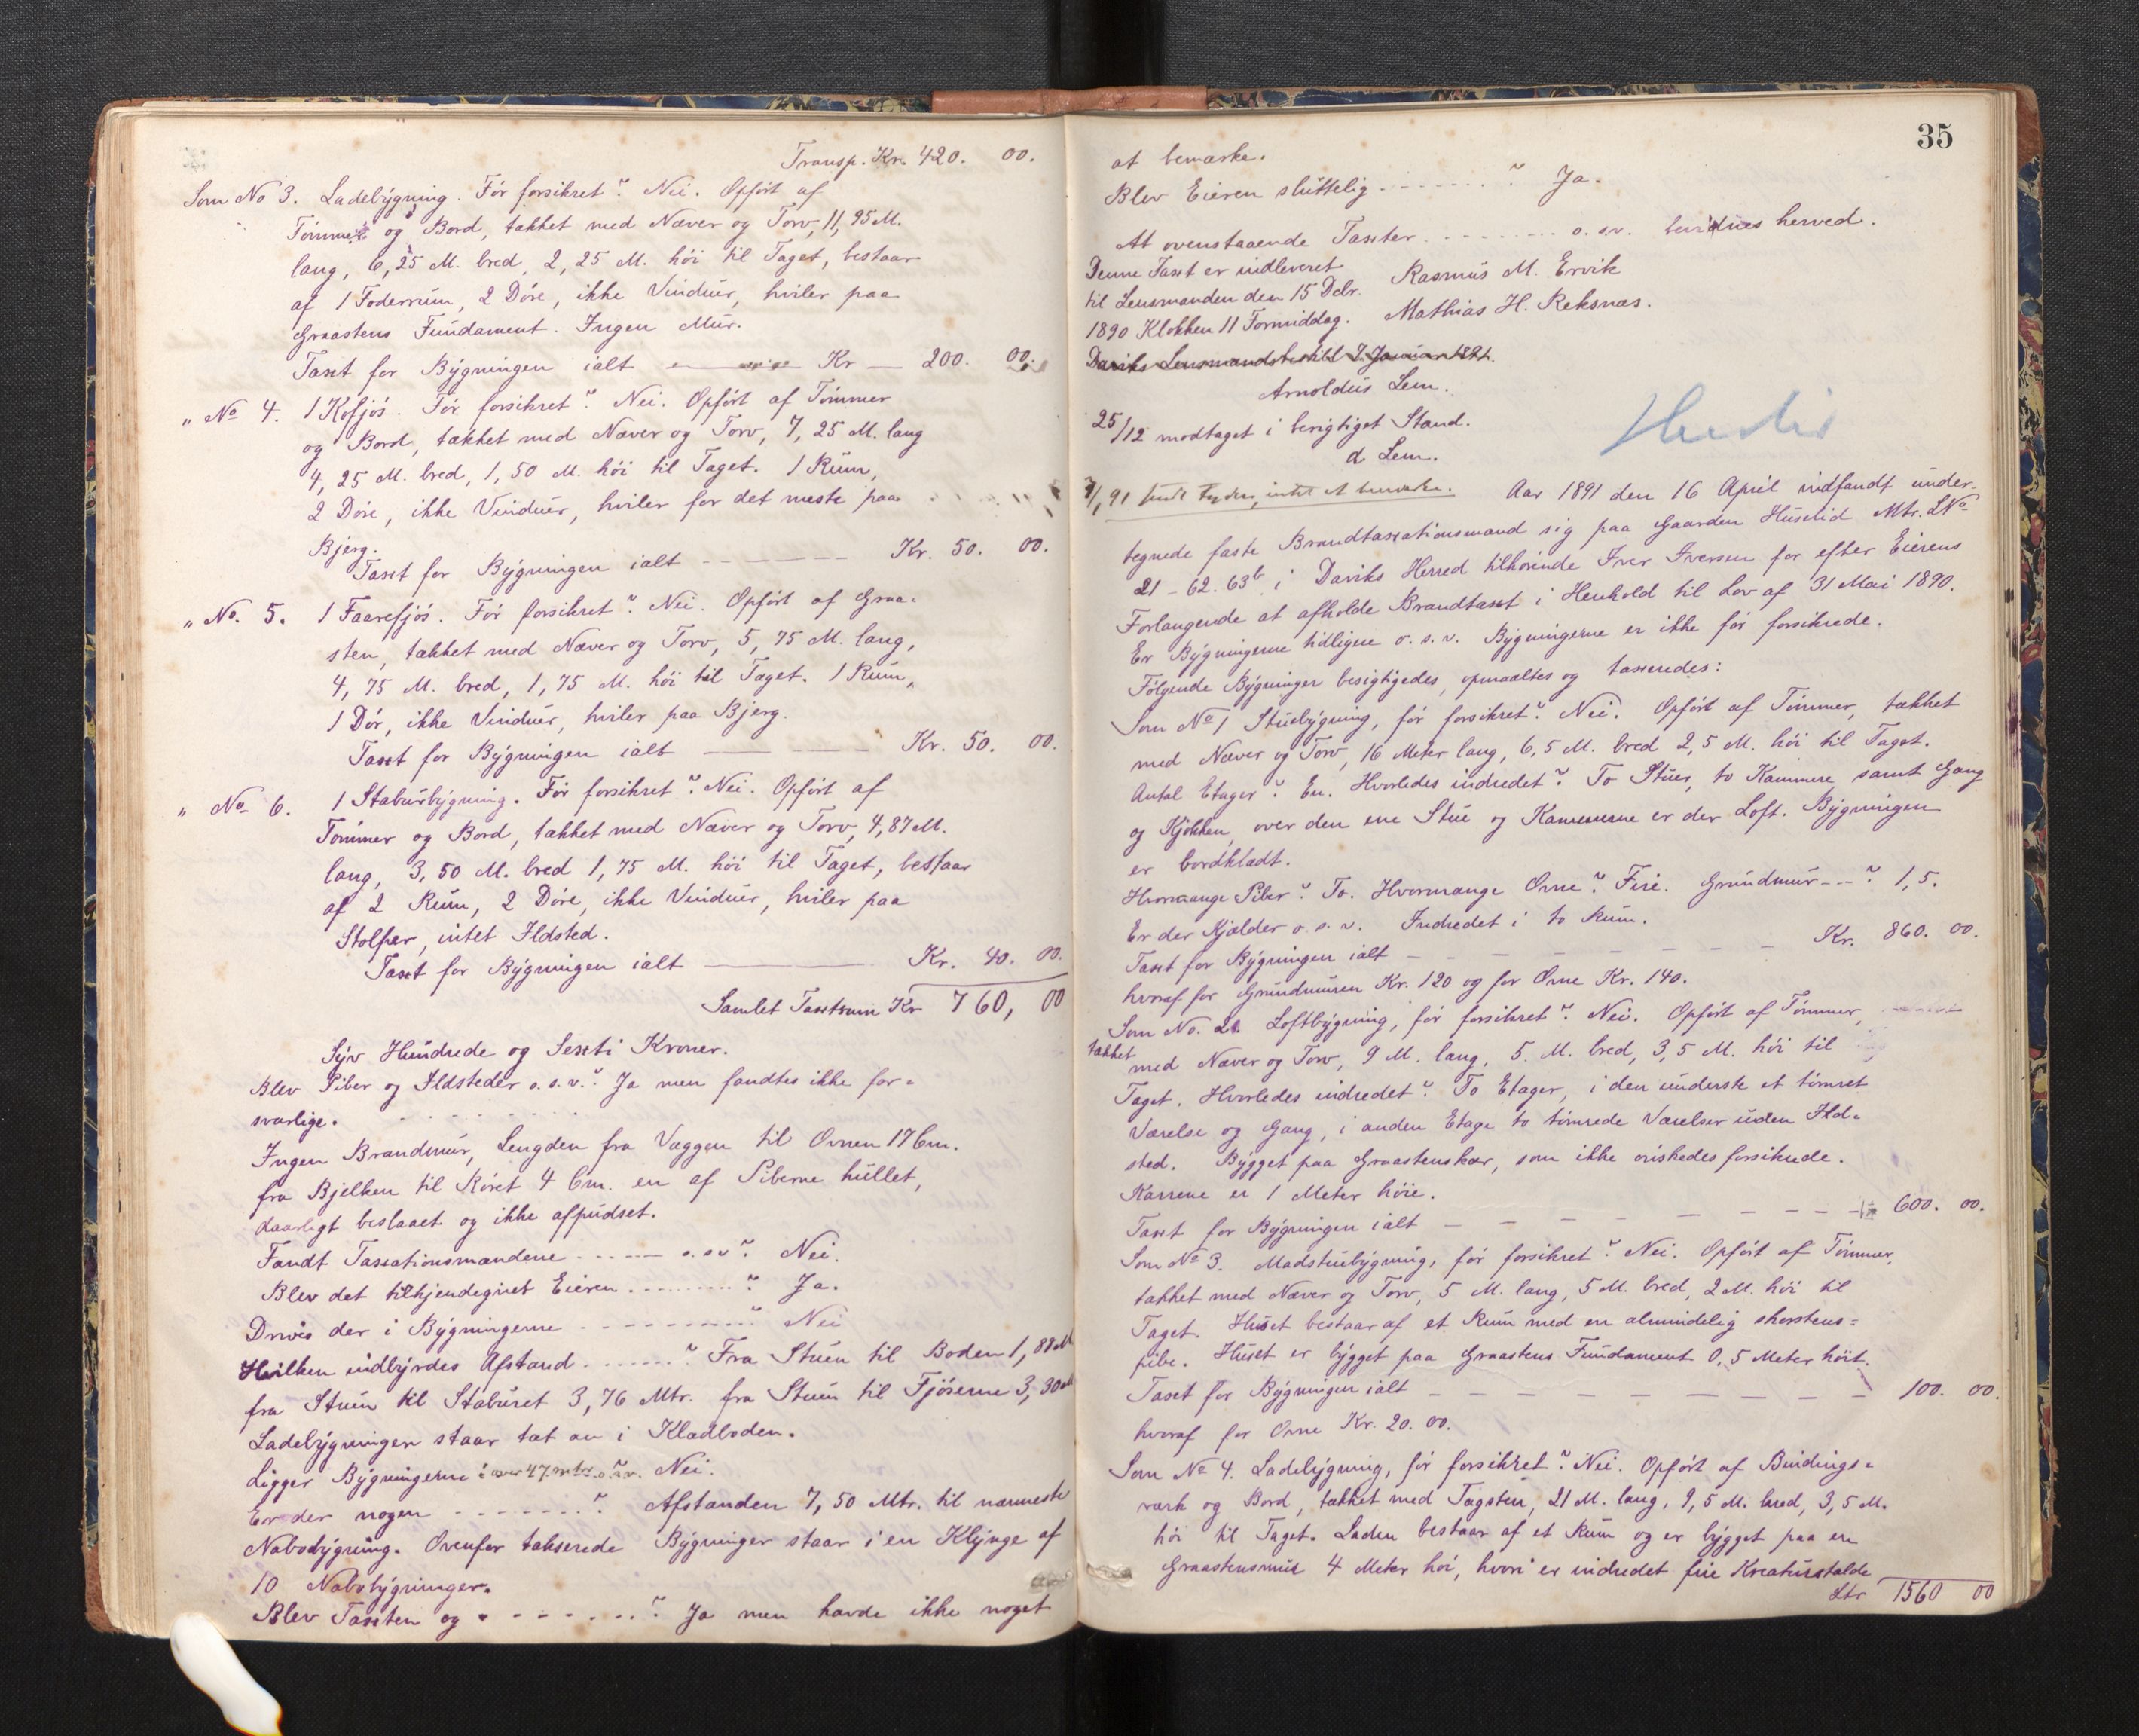 Transp. Kr. 420. 00.
Som No 3. Ladebygning. Før forsikret? Nei. Opført af
Tømmer og Bord, tækket med Næver og Torv, 11,95 M.
lang, 6,25 M. bred, 2,25 M. høi til Taget, bestaar
af 1 Foderrum, 2 Døre, ikke Vinduer, hviler paa
Graastens Fundament. Ingen Mur.
Taxt for Bygningen ialt Kr 200. 00.
" No 4. 1 Kofjøs. Før forsikret? Nei. Opført af Tømmer
og Bord, tækket med Næver og Torv, 7,25 M. lang
4,25 M. bred, 1,50 M. høi til Taget. 1 Rum,
2 Døre, ikke Vinduer, hviler for det meste paa
Bjerg.
Taxt for Bygningen ialt - - - - Kr. 50. 00.
" No. 5. 1 Faarefjøs. Før forsikret? Nei. Opført af Graa-
sten, tækket med Næver og Torv, 5,75 M. lang,
4,75 M. bred, 1,75 M. høi til Taget. 1 Rum,
1 Dør, ikke Vinduer, hviler paa Bjerg.
Taxt for Bygningen ialt Kr. 50. 00.
" No 6. 1 Stabursbygning. Før forsikret? Nei. Opført af
Tømmer og Bord, tækket med Næver og Torv, 4,87 M.
lang, 3,50 M. bred 1,75 M. høi til Taget, bestaar
af 2 Rum, 2 Døre, ikke Vinduer, hviler paa
Stolper, intet Ildsted.
Taxt for Bygningen ialt Kr. 40. 00.
Samlet Taxtsum Kr 760, 00
Syv Hundrede og Sexti Kroner.
Blev Piber og Ildsteder o.s.v.? Ja men fandtes ikke for-
svarlige.
Ingen Brandmur, Lengden fra Væggen til Ovnen 17 Cm.
fra Bjelken til Røret 4 Cm. en af Piberne hullet,
daarligt beslaaet og ikke afpudset.
Fandt Taxationsmændene - - - o.s.v? Nei.
Blev det tilkjendegivet Eieren ........? Ja.
Drives der i Bygningerne - - - - - ? Nei
Hvilken indbyrdes Afstand .......? Fra Stuen til Boden 1,88 M
fra Stuen til Staburet 3,76 Mtr. fra Stuen til Fjøserne 3,30 M
Ladebygningen staar tæt an i Klædboden.
Ligger Bygningerne i over 47 mtr. o.s.v. Nei.
Er der nogen - - - - - ? Afstanden 7,50 Mtr. til nærmeste
Nabobygning. Ovenfor takserede Bygninger staar i en Klynge af
10 Nabobygninger.
Blev Taxten og - - - - - ? Ja men havde ikke noget
35
at bemærke.
Blev Eieren sluttelig - - - - ? Ja.
At ovenstaaende Taxter - - - - - o.s.v. bevidnes herved.
Denne Taxt er indleveret Rasmus M. Ervik
til Lensmanden den 15 Dcbr. Mathias H. Reksnæs.
1890 Klokken 11 Formiddag.
Daviks Lensmandsbestil 7 Januar 1891.
Arnoldus Lem.
25/12 modtaget i berigtiget Stand.
A Lem.
Huslid
intet at bemærke. Aar 1891 den 16 April indfandt under-
tegnede faste Brandtaxationsmænd sig paa Gaarden Huslid Mtr. LNo
21 - 62. 63b i Daviks Herred tilhørende Iver Iversen for efter Eierens
Forlangende at afholde Brandtaxt i Henhold til Lov af 31 Mai 1890.
Er Bygningerne tidligere o. s. v. Bygningerne er ikke før forsikrede.
Følgende Bygninger besigtigedes, opmaaltes og taxeredes:
Som No 1 Stuebygning, før forsikret? Nei. Opført af Tømmer, tækket
med Næver og Torv, 16 Meter lang, 6,5 M. bred 2,5 M. høi til Taget.
Antal Etager? En. Hvorledes indredet? To Stuer, to Kammere samt Gang
og Kjøkken, over den ene Stue og Kammerne er der Loft. Bygningen
er bordklædt.
Hvormange Piber? To. Hvormange Ovne? Fire. Grundmur - - ? 1,5.
Er der Kjælder o. s. v. Indredet i to Rum.
Taxt for Bygningen ialt - - - - - Kr. 860. 00.
hvoraf for Grundmuren Kr. 120 og for Ovne Kr. 140.
Som No. 2. Loftbygning, før forsikret? Nei. Opført af Tømmer,
tækket med Næver og Torv, 9 M. lang, 5. M. bred, 3,5 M. høi til
Taget. Hvorledes indredet? To Etager, i den underste et tømret
Værelse og Gang, i anden Etage to tømrede Værelser uden Ild-
sted. Bygget paa Graastenskar, som ikke ønskedes forsikrede.
Karrene er 1 Meter høie.
Taxt for Bygningen ialt - - - - - 600. 00.
Som No 3. Madstuebygning, før forsikret? Nei. Opført af Tømmer,
tækket med Næver og Torv, 5 M. lang, 5 M. bred, 2 M. høi til
Taget. Huset bestaar af et Rum med en almindelig skorstens-
pibe. Huset er bygget paa Graastens Fundament 0,5 Meter høit.
Taxt for Bygningen ialt - - - - - 100. 00.
hvoraf for Ovne Kr. 20. 00.
Som No 4. Ladebygning, før forsikret? Nei. Opført af Bindings-
værk og Bord, tækket med Tagsten, 21 M. lang, 9,5 M. bred, 3,5 M.
høi til Taget. Laden bestaar af et Rum og er bygget paa en
Graastensmur 4 Meter høi, hvori er indredet fire Kreaturstalde
Ltr 1560 00